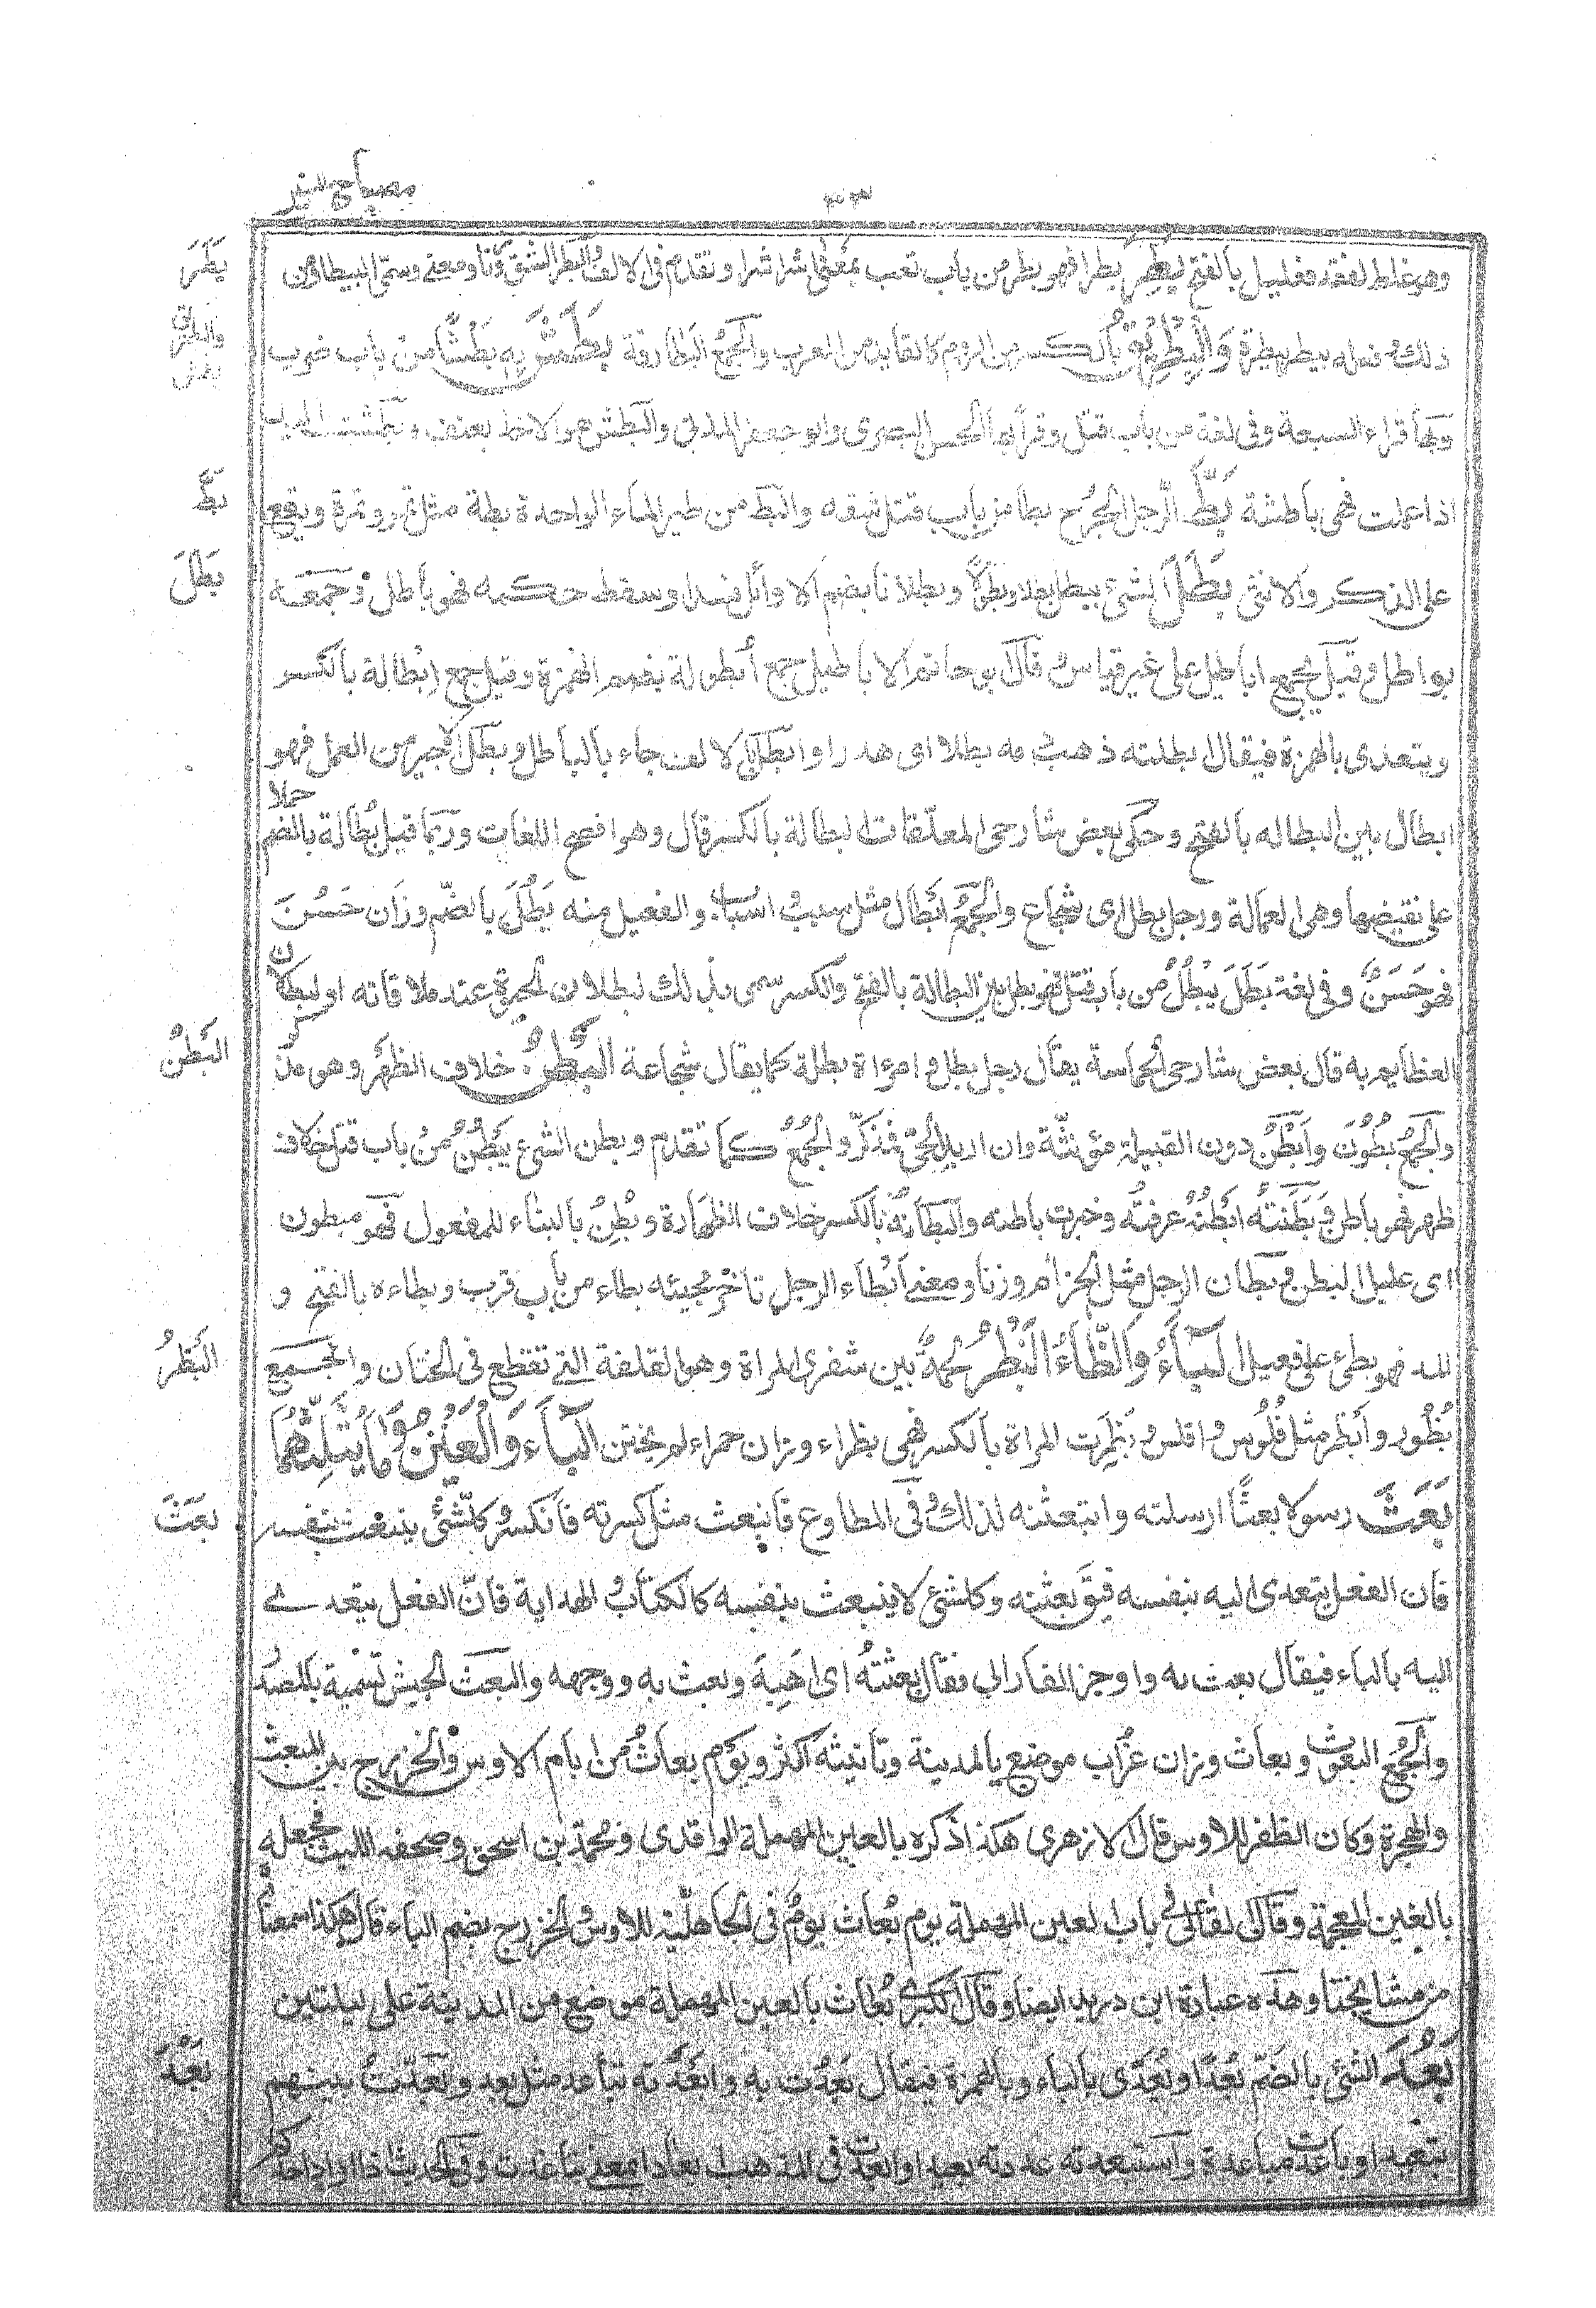 مصباح منير
وهو غلط لفقد فعليل بالفتح بطر بطرا فهو بطر من باب تعب بمعنى اشر اشرا وتقدم في الالف والبطر الشق وزنا ومعنى وسمى البيطار من
بطر
ذلك وفعله بيطر بيطرة والبطريق بالكسر من الروم كالقايد من العرب والجمع البطارقة بطش به بطشا من باب ضرب
والبطريق
بطش
وبها قراء السبعة وفى لغة من باب قتل وقرأ بها الحسن البصرى وابو جعفر المدنى والبطش هو الاخذ بعنف وبطشت اليد
اذا عملت فهى باطشة بط الرجل الجرح بطا من باب قتل شقه والبط من طير الماء الواحدة بطة مثل تمر وتمرة ويقع
بط
على الذكر والانثى بطل الشئ يبطل بطلا وبطولا وبطلانا بضم الاوائل فسد او سقط حكمه فهو باطل وجمعه
بطل
بواطل وقيل يجمع اباطيل على غير قياس وقال ابو حاتم الاباطيل جمع أبطولة بضم الهمزة وقيل جمع إبطالة بالكسر
ويتعدى بالهمزة فيقال ابطلته ذهب دمه بطلا اى هدرا وابطل بالالف جاء بالباطل وبطل الاجير من العمل فهو
ابطال بين البطاله بالفتح وحكى بعض شارحى المعلقات البطالة بالكسر قال وهو افصح اللغات وربما قيل بُطالة بالضم حملا
على نقيضها وهى العمالة ورجل بطل اى شجاع والجمع ابطال مثل سبب واسباب والفعل منه بَطُلَ بالضّم وزان حَسُنَ
فهو حَسَنٌ وفى لغة بَطَلَ يبطُلُ من باب قتل فهو بطل بين البطالة بالفتح والكسر سمى بذلك لبطلان الحيوة عند ملاقاته او لبطلان
العظايم به قال بعض شارحى الحماسة يقال رجل بطل وامرؤاة بطلة كما يقال شجاعة البَطْنُ خلاف الظهر وهو مذكر
البَطْنُ
والجمع بُطُون وأبطُن دون القبيلة مؤنثة وان اريد الحىّ فمذكّر والجمع كما تقدم وبطن الشئ يَبطُنُ من باب قتل خلاف
ظهر فهو باطن وبَطَنتُه ابطُنُه عرفتُه وخبرت باطنه والبطانةُ بالكسر خلاف الظهارة وبُطِنَ بالبناء للمفعول فهو مبطون
اى عليل البطن وبطان الرجل مثل الحزام وزنا ومعنى أبطاء الرجل تأخّر مجيئه بطاء من باب قرب وبطاءه بالفتح و
المد فهو بطئ على فعيل الباءُ والظّاءُ البَظْرُ لحمةٌ بين شفرى المراة وهو القلفة التى تقطع فى الختان والجمع
البَظْرُ
بُظُور وأبظر مثل فُلُوس وافلس وبَظِرَت المراة بالكسر فهى بظراء وزان حمراء لم يختتن الباءَ وَالعَيْنُ وَمَا يُثَلِّثُهُمَا
بَعَثَ رسولا بعثًا ارسلته وابتعثته لذلك وفى المطاوع فانبعث مثل كسرته فانكسر وكلّ شئ ينبعث بنفسه
بعَثَ
فان الفعل يتعدى اليه بنفسه فيق بعثته وكل شئ لا ينبعث بنفسه كالكتاب والهداية فانّ الفعل يتعدى
اليه بالباء فيقال بعث به واوجز الفارابي فقال بعثته اى اهَبّه وبعث به ووجهه والبعث الجيش تسمية بالمصدر
والجمع البعوث وبعاث وزان غراب موضع بالمدينة وتأنيثه اكثر ويوم بعاث من ايام الاوس والخزرج بين المبعث
والهجرة وكان الظفر للاوس قال الازهرى هكذا ذكره بالعين المهملة الواقدى ومحمد بن اسحق وصحفه الليث فجعله
بالغين المعجمة وقال القالى فى باب العين المهملة يوم بُعاث يومٌ فى الجاهليّة للاوس والخزرج بضم الباء قال هكذا سمعناه
من مشايخنا وهذه عبارة ابن دريد ايضا وقال البكرى بُعاث بالعين المهملة موضع من المدينة على ليلتين
بَعُدَ الشئ بالضمّ بُعدًا ويُعدّى بالباء وبالهمزة فيقال بَعُدت به وابعدته تباعد مثل بعد وبعّدتُ بينهم
بَعُدَ
تبعيدا وباعدت مباعدة واستبعدته عددته بعيدا وابعدت فى المذهب ابعادا بمعنى تباعدت وفى الحديث اذا اراد احدكم